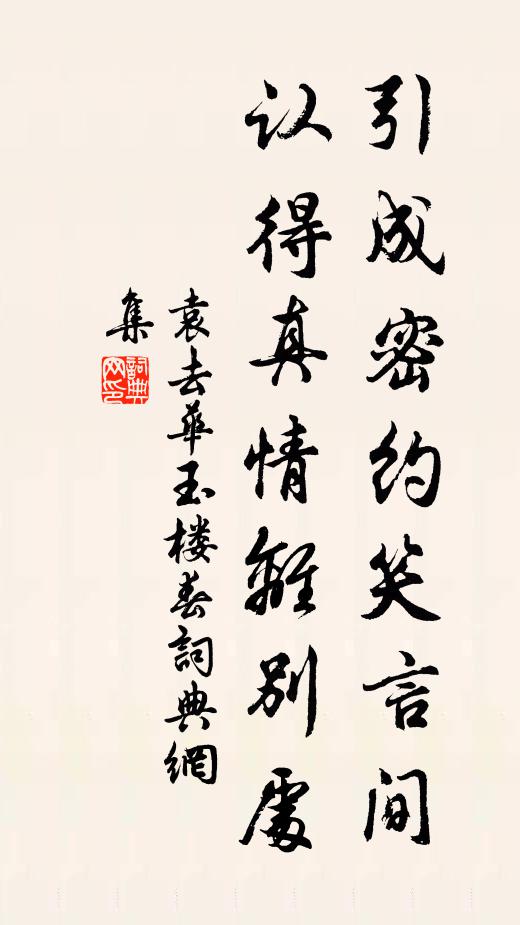 引成密约笑言间
认得真情離别處
袁去華玉楼春詞典網
集
詞典网印